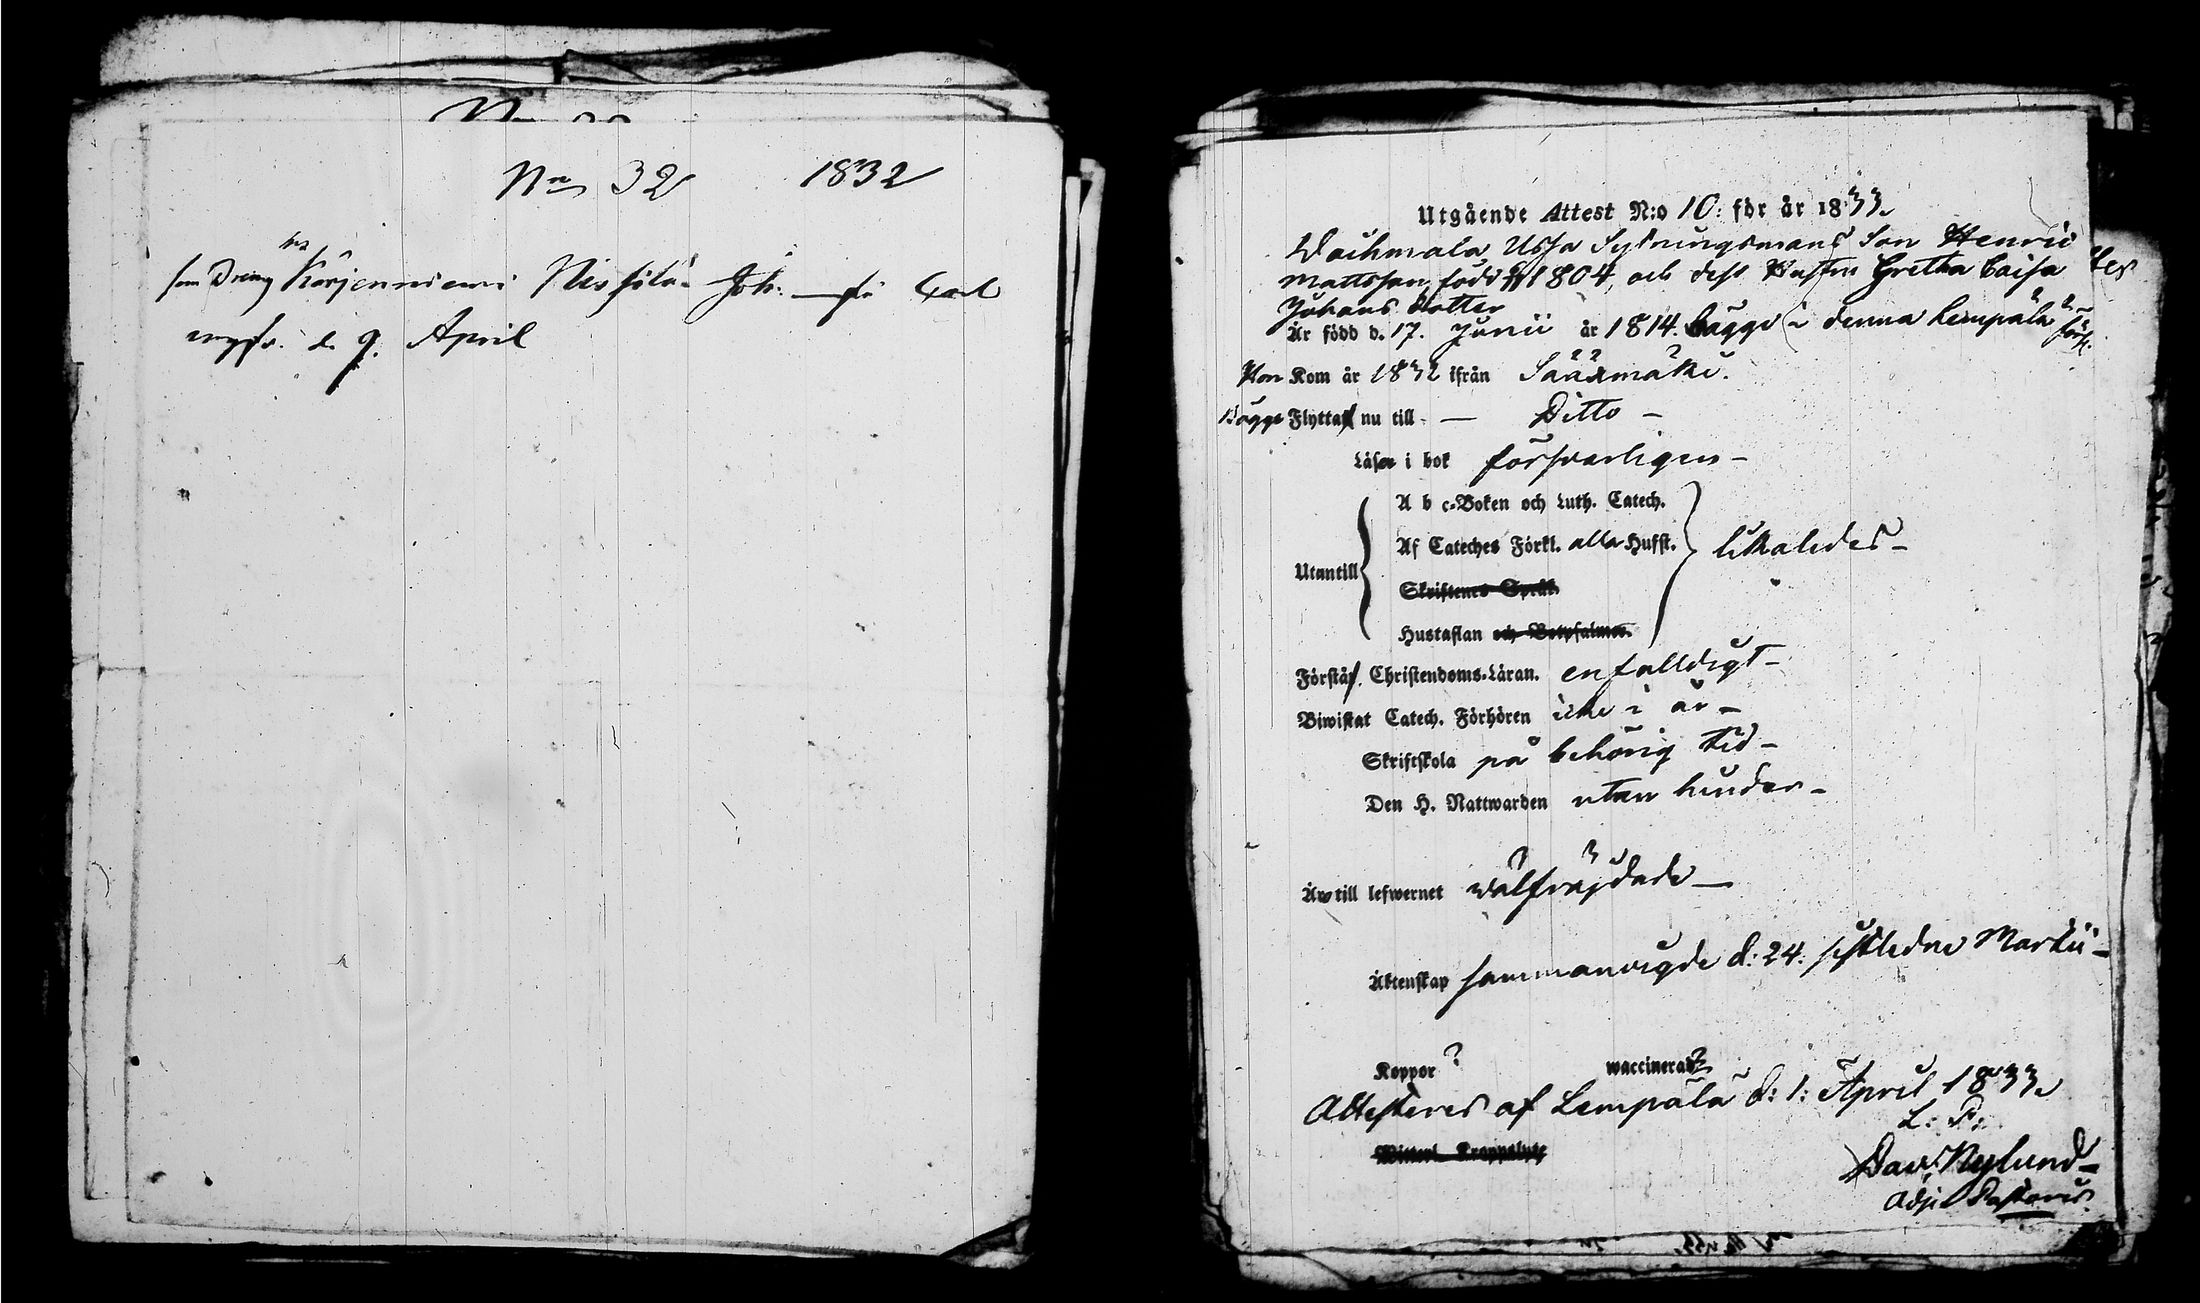 No 32 1832
som Dreng hos Korjenniemi Nissilä Joh. på Carl
d. 9. April
Utgående Attest N:o 10: för år 1833.
Mattsson, född 1804, och dess Hustru Gretha Caisa
Johans dotter
Är född d. 17. Junii år 1814. bägge i denna Lempälä förs.
Hon Kom år 1832 ifrån Sääxmäki.
Bägge Flytta nu till - Ditto -
Läsa i bok försvarligen -
A b c-Boken och Luth. Catech.
Utantill Af Cateches Förkl. alla Hufst. likaledes -
Skriftenes Språk
Hustaflan och Botpsalmer.
Förstå Christendoms-Läran. enfalldigt -
Biwistat Catech. Förhören icke i år -
Skriftskola på behörig tid -
Den H. Nattwarden utan hinder -
Äro till lefwernet wälfräjdade -
Äktenskap sammanvigde d: 24: sistledne Martii -
Koppor ? waccinerad ?
Attesteres af Lempälä d: 1: April 1833.
L: P:
Dav. Nylund -
Adj: Pastoris.